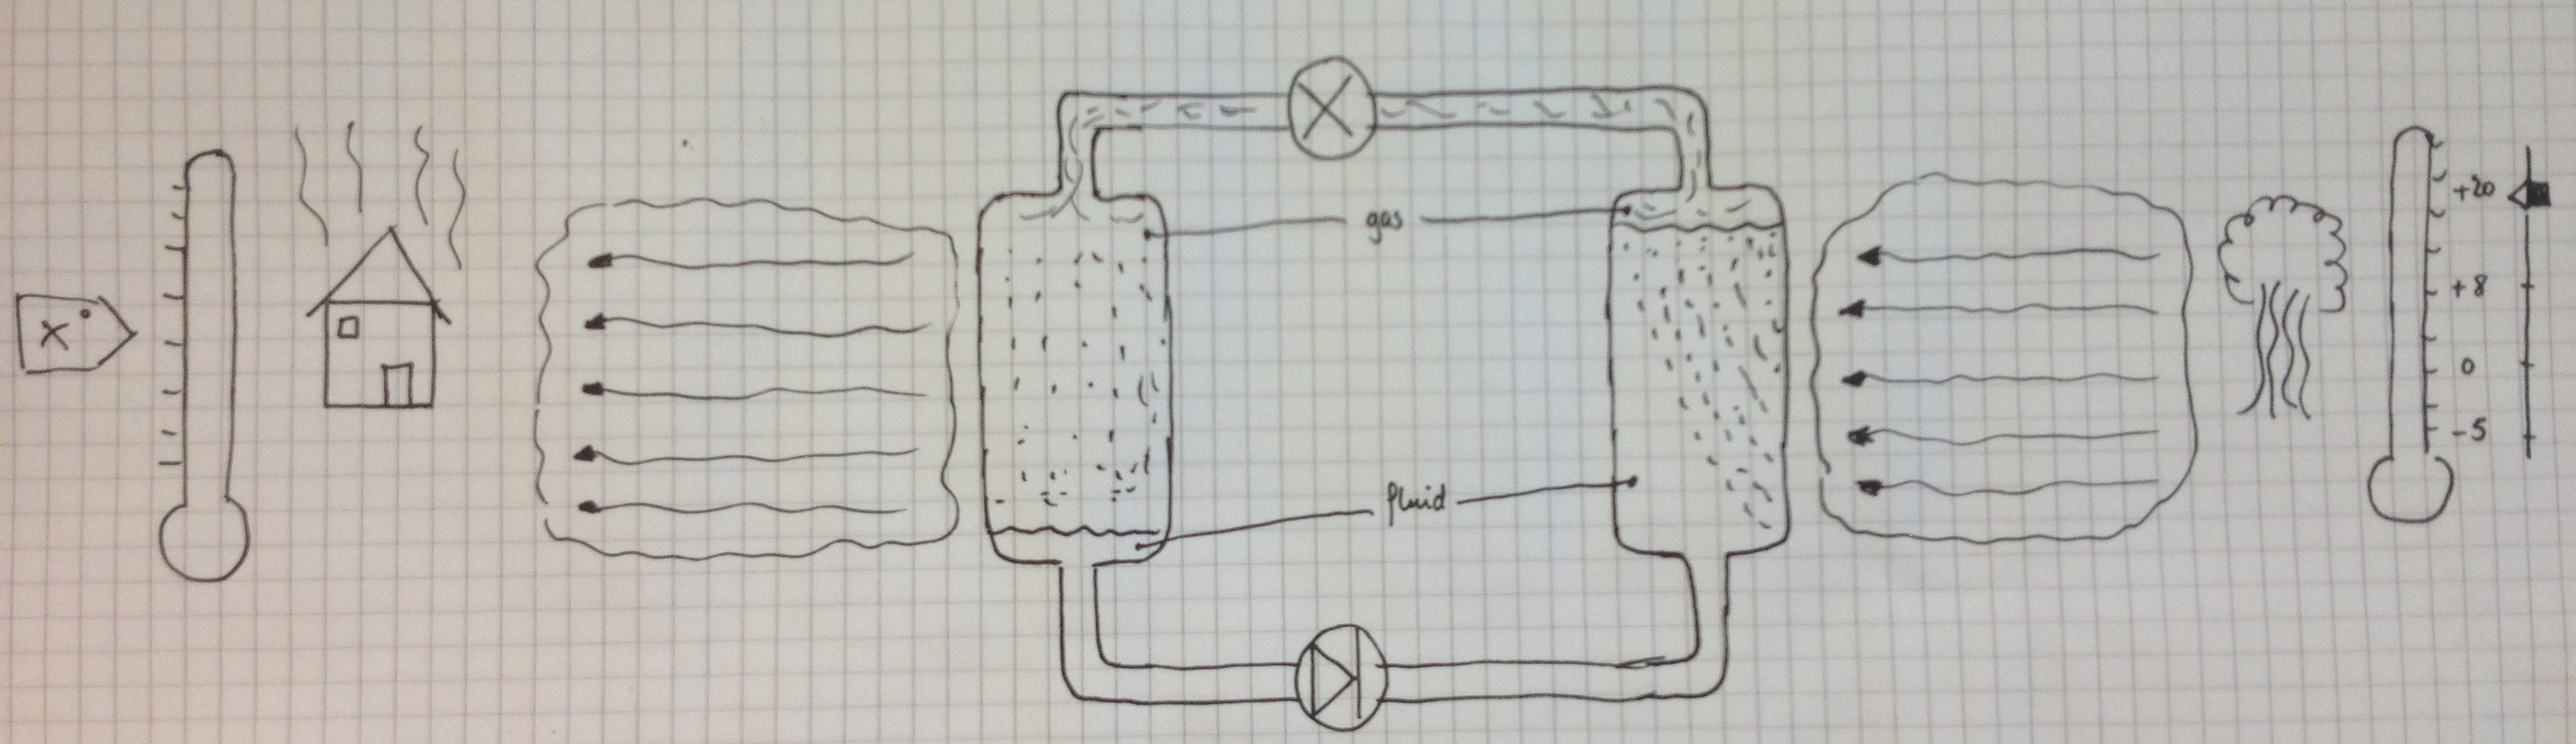 x°
gas
fluid
+20
+8
0
-5